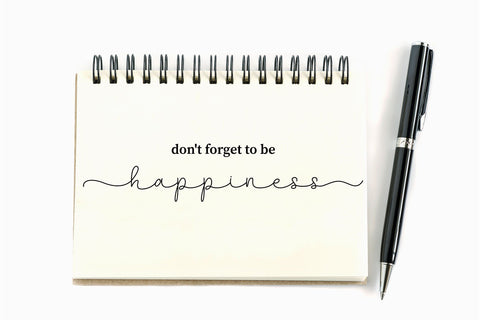 don't forget to be
happiness